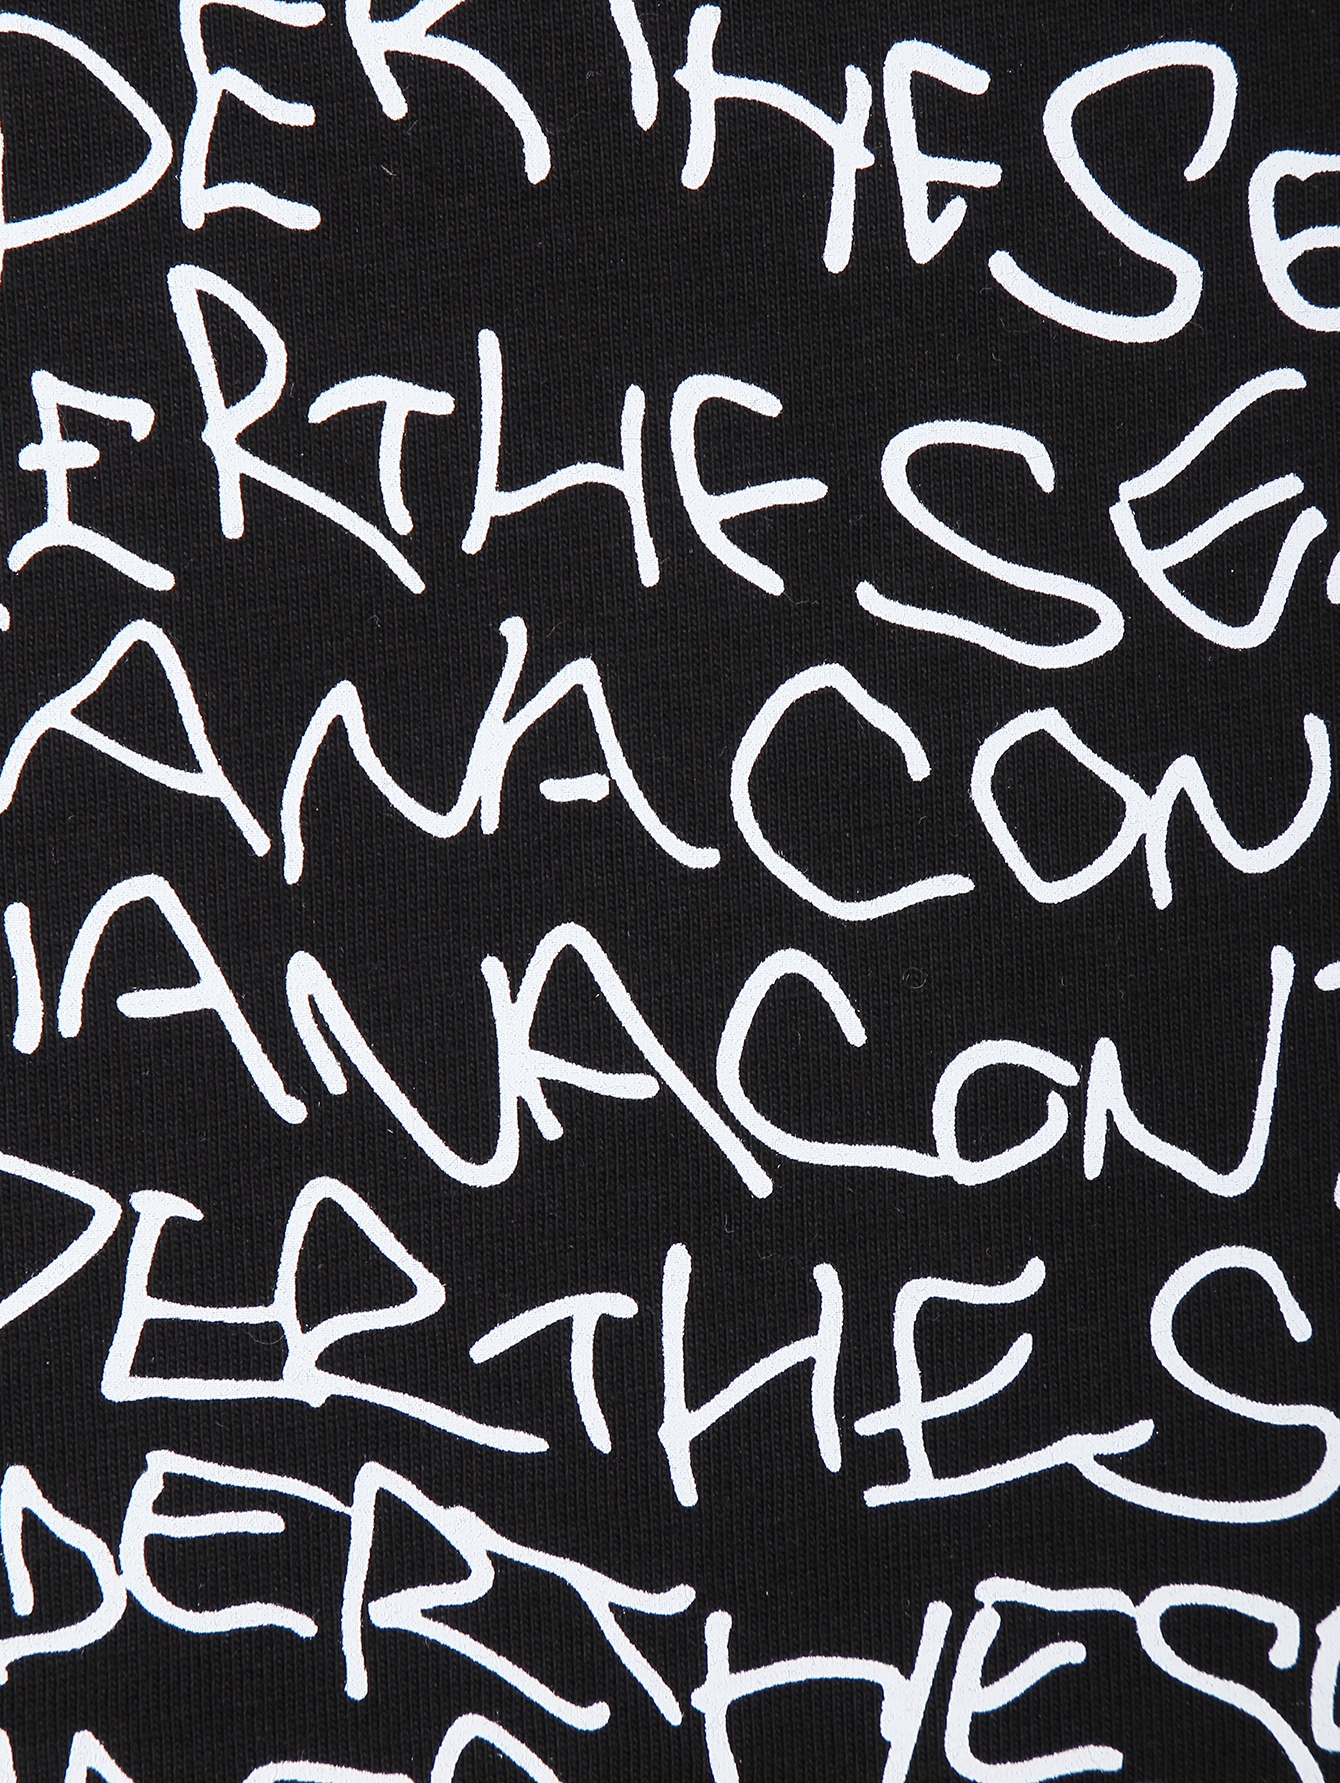 DER THESE
ER THE SE
ANACON
IANACON
DER THE S
DER THESE